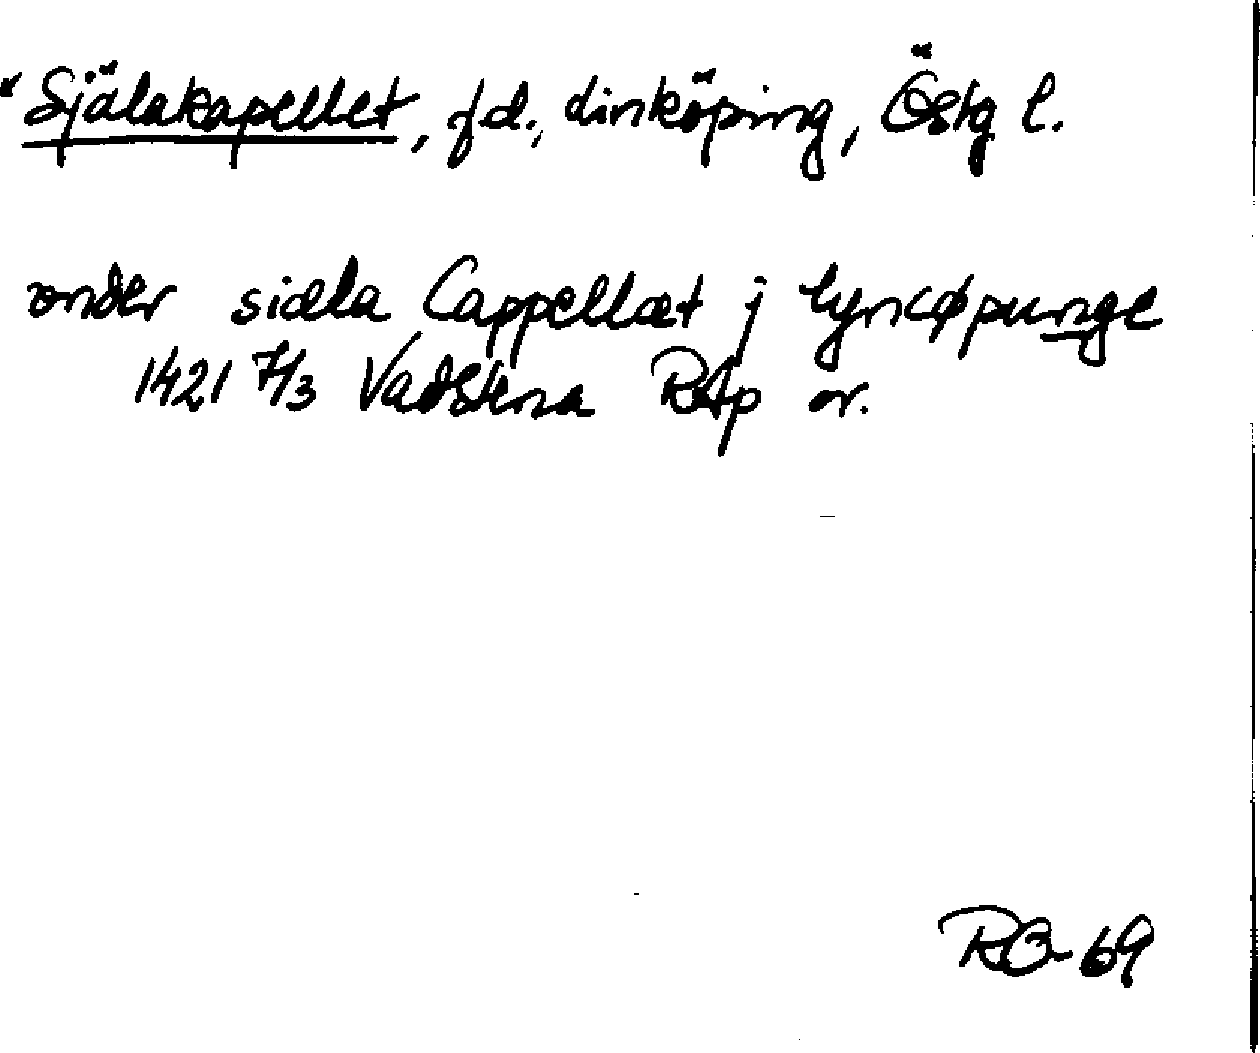 "Själakapellet, fd., Linköping, Östg l.
vnder siæla Cappellæt j lyncøpunge
1421 7/3 Vadstena RAp or.
RO-69